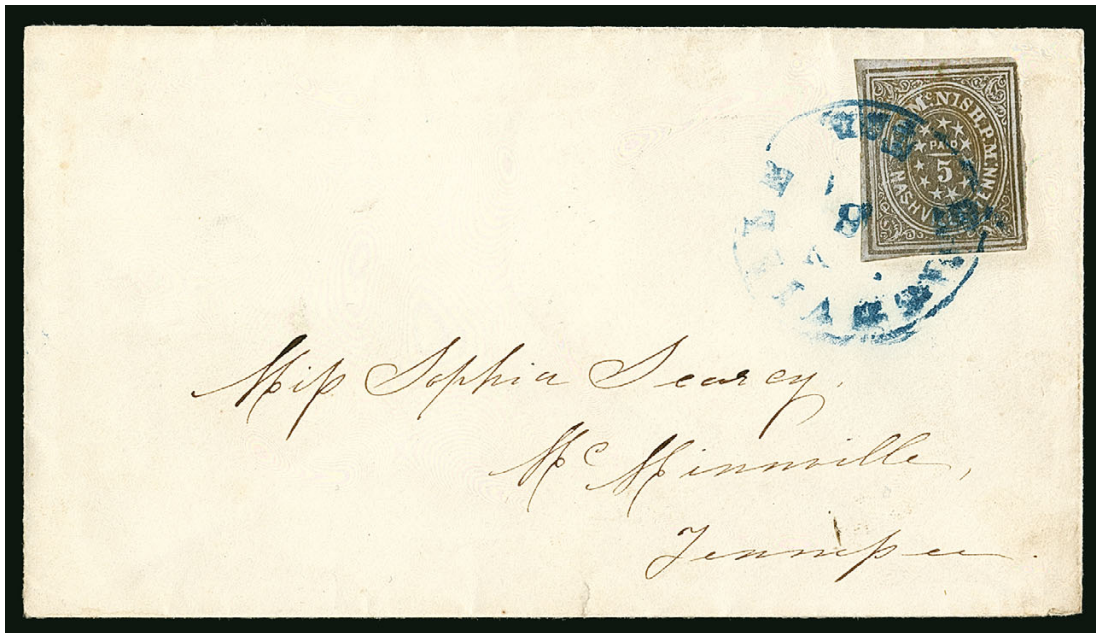 McNISH. P. M.
PAID
5
NASHV ENN.
8
Miss Sophia Searcy.
Mc Minnville,
Tennessee.